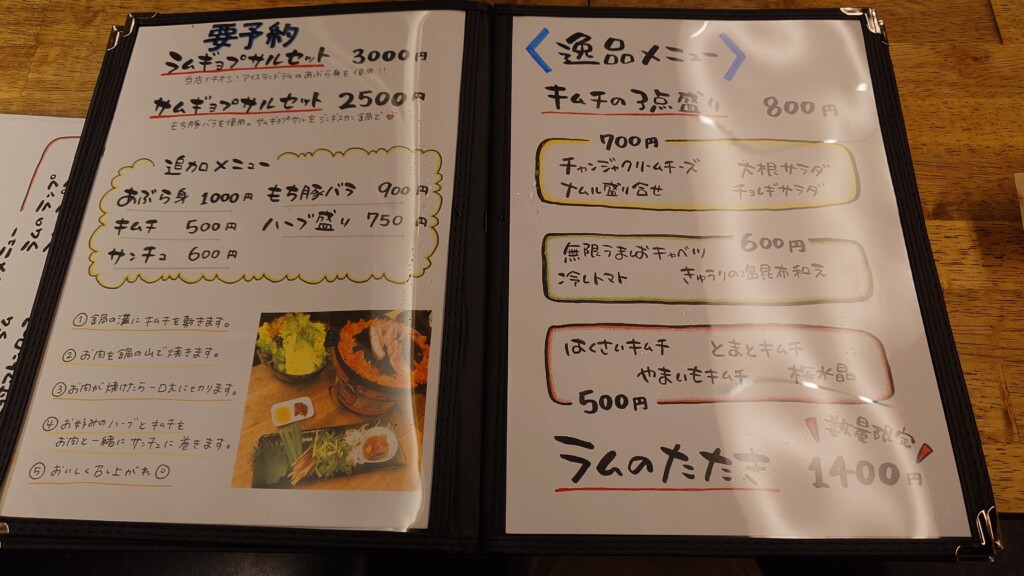 要予約
ラムギョプサルセット 3000円
当店イチオシ!アイスランドラムのあぶら身を使用!!
サムギョプサルセット 2500円
もち豚バラを使用。サムギョプサルをジンギスカン鍋で
追加メニュー
あぶら身 1000円 もち豚バラ 900円
キムチ 500円 ハーブ盛り 750円
サンチュ 600円
①鍋の溝にキムチを敷きます。
②お肉を鍋の山で焼きます。
③お肉が焼けたら一口大に切ります。
④お好みのハーブとキムチを
お肉と一緒にサンチュに巻きます。
⑤おいしく召し上がれ
〈逸品メニュー〉
キムチの3点盛り 800円
700円
チャンジャクリームチーズ 大根サラダ
ナムル盛り合せ チョレギサラダ
600円
無限うましおキャベツ
冷しトマト きゅうりの塩昆布和え
はくさいキムチ とまとキムチ
やまいもキムチ 梅水晶
500円
数量限定
ラムのたたき 1400円